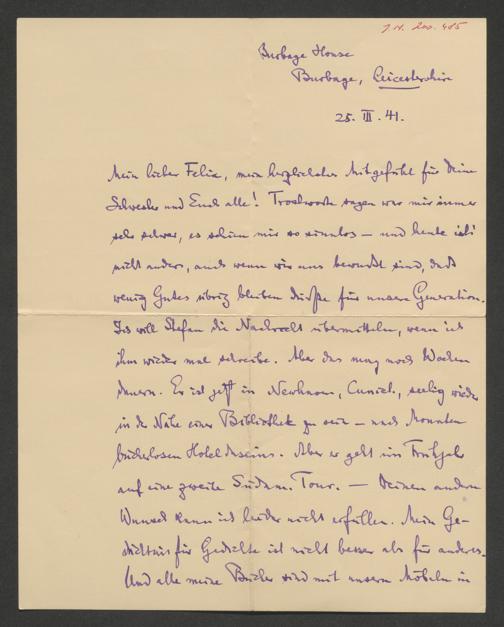 J.N. 200.485
Burbage House
Burbage, Leicestershire
25. III. 41.
Mein lieber Felix, mein herzlichstes Mitgefühl für Deine
Schwester und Euch alle! Trostworte sagen war mir immer
sehr schwer, es schien mir so sinnlos – und heute ists
nicht anders, auch wenn wir uns bewusst sind, dass
wenig Gutes übrig bleiben dürfte für unsere Generation.
Ich will Stefan die Nachricht übermitteln, wenn ich
ihm wieder mal schreibe. Aber das mag noch Wochen
dauern. Er ist jetzt in Newhaven, Cunct., selig wieder
in der Nähe einer Bibliothek zu sein – nach Monaten
bücherlosen Hotel Daseins. Aber er geht im Frühjahr
auf eine zweite Südam. Tour. — Deinen andern
Wunsch kann ich leider nicht erfüllen. Mein Ge-
dächtnis für Gedichte ist nicht besser als für anderes.
Und alle meine Bücher sind mit unsern Möbeln in